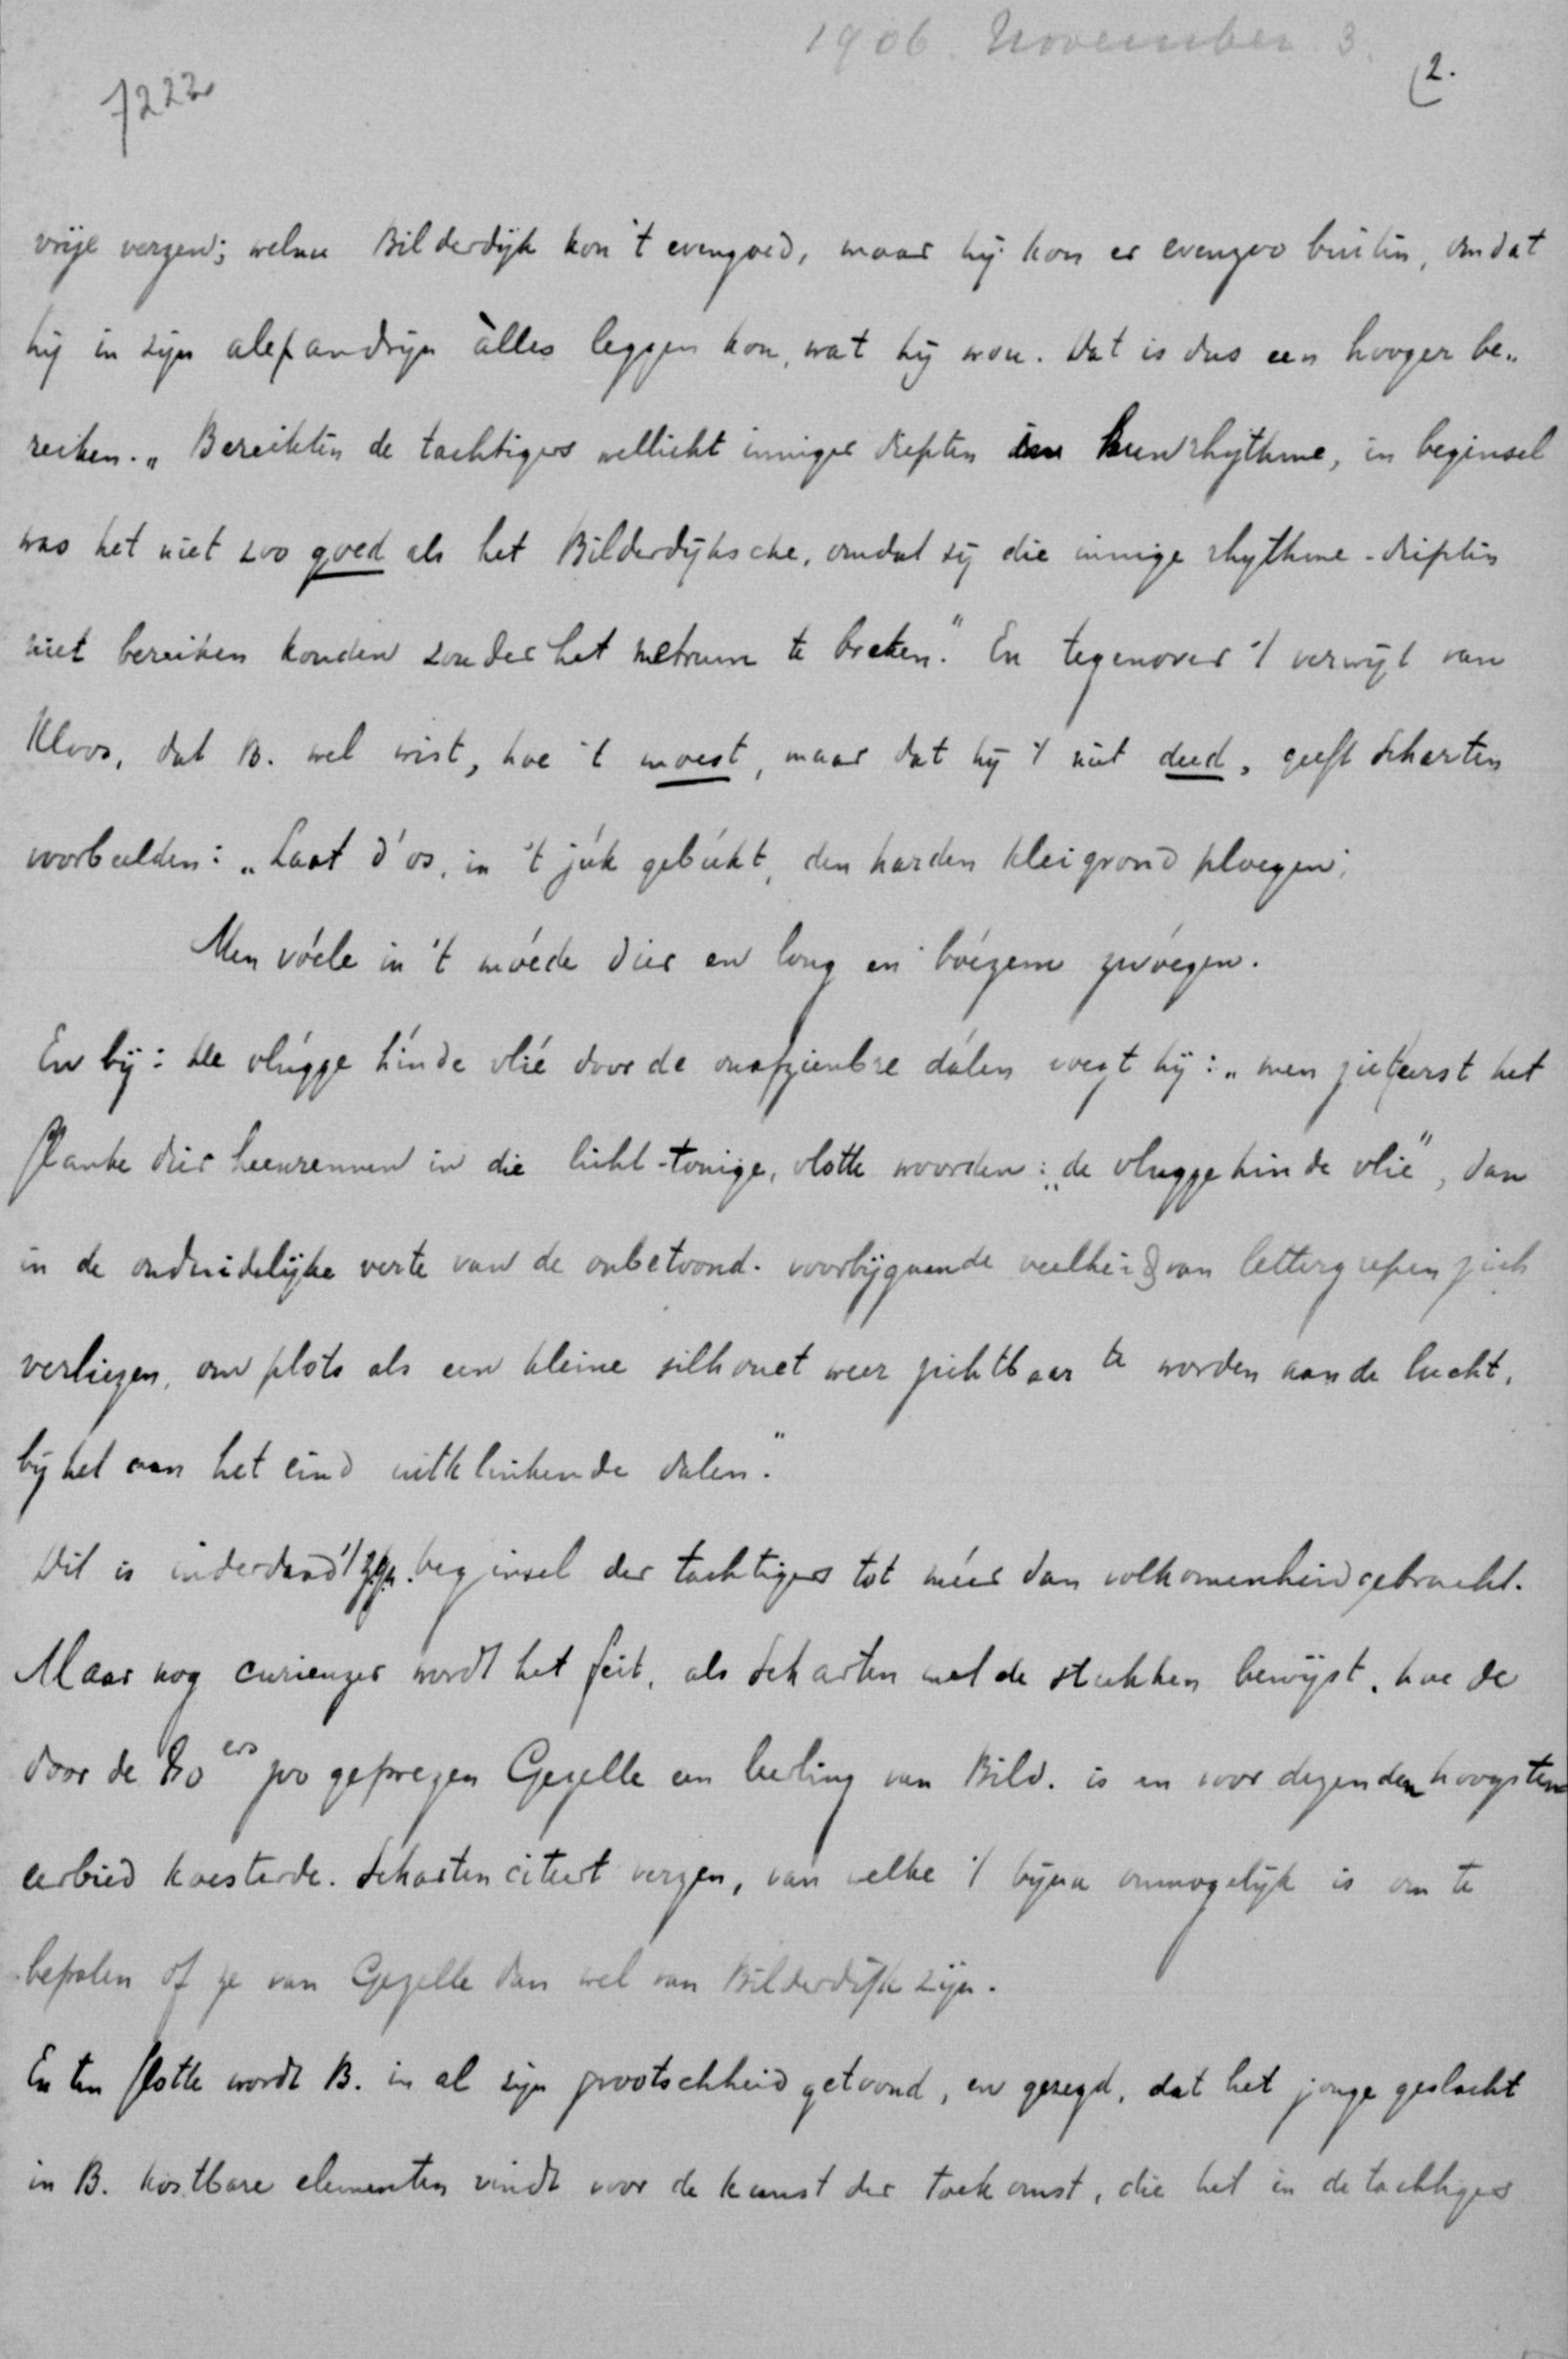 1906. November 3.
7222
(2.
vrije verzen; welnu Bilderdijk kon 't evengoed, maar hij kon er evenzoo buiten, omdat
hij in zijn alexandrijn àlles leggen kon, wat hij wou. Dat is dus een hooger be„
reiken. „Bereikten de tachtigers wellicht inniger diepten in hun rhythme, in beginsel
was het niet zoo goed als het Bilderdijksche, omdat zij die innige rhythme-diepten
niet bereiken konden zonder het metrum te breken." En tegenover 't verwijt van
Kloos, dat B. wel wist, hoe 't moest, maar dat hij 't niet deed, geeft Scharten
voorbeelden: „Laat d'os, in 't júk gebúkt, den harden kleigrond ploegen;
Men vóele in 't móede dier en long en bóezem zwóegen.
En bij: De vlúgge hínde vlié door de onafzienbre dálen voegt hij: „men ziet eerst het
slanke dier heenrennen in die licht-tonige, vlotte woorden: „de vlugge hinde vlie", dan
in de onduidelijke verte van de onbetoond-voorbijgaande veelheid van lettergrepen zich
verliezen, om plots als een kleine silhouet weer zichtbaar te worden aan de lucht,
bij het aan het eind uitklinkende dalen."
Dit is inderdaad 't zgn. beginsel der tachtigers tot méér dan volkomenheid gebracht.
Maar nog curieuzer wordt het feit, als Scharten met de stukken bewijst, hoe de
door de 80ers zoo geprezen Gezelle een leerling van Bild. is en voor dezen den hoogsten
eerbied koesterde. Scharten citeert verzen, van welke 't bijna onmogelijk is om te
bepalen of ze van Gezelle dan wel van Bilderdijk zijn.
En ten slotte wordt B. in al zijn grootschheid getoond, en gezegd, dat het jonge geslacht
in B. kostbare elementen vindt voor de kunst der toekomst, die het in de tachtigers